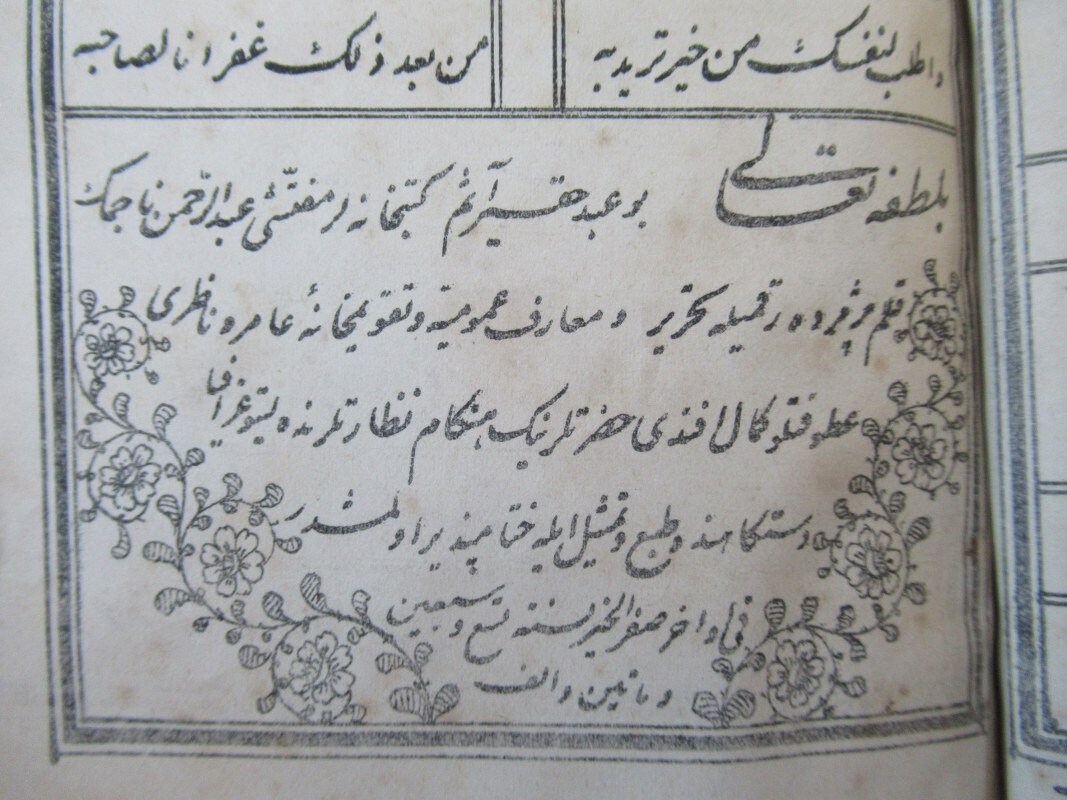 واطلب لنفسك من خير تريد به
من بعد ذلك غفرانا لصاحبه
بلطفه تعالى بو عبد حقير آثم كتبخانه لر مفتشى عبد الرحمن ناجمك
قلم مژفروده رقميله تحرير و معارف عموميه و تقويمخانۀ عامره ناظرى
عطوفتلو كمال افندى حضرتلرينك هنكام نظارتلرنده ليتوغرافيا
دستكاهنده طبع و تمثيل ايله ختامپذير اولمشدر
فى اواخر صفر الخير لسنه تسع و سبعين
و مائتين و الف